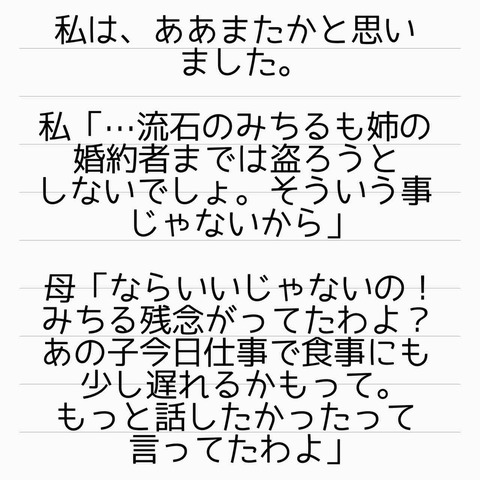 私は、ああまたかと思い
ました。
私「…流石のみちるも姉の
婚約者までは盗ろうと
しないでしょ。そういう事
じゃないから」
母「ならいいじゃないの！
みちる残念がってたわよ？
あの子今日仕事で食事にも
少し遅れるかもって。
もっと話したかったって
言ってたわよ」